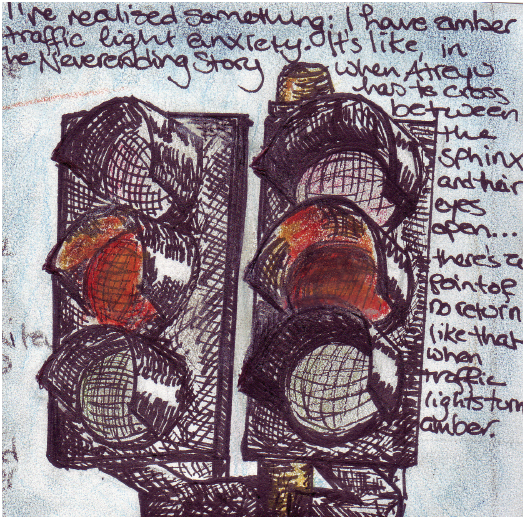 I've realised something: I have amber
traffic light anxiety. It's like, in
he Neverending Story
when Atreyu
has to cross
between
the
sphinx
and their
eyes
open...
there's a
point of
no return
like that
when
traffic
lights turn
amber.